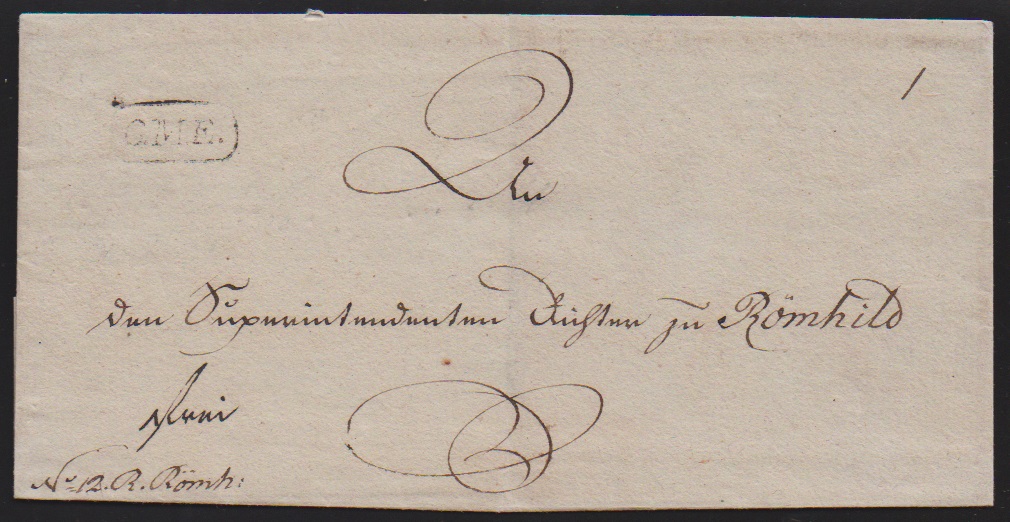 /
C.M.E.
An
den Superintendenten Richter zu Römhild
frei
No 12. R. Römh: